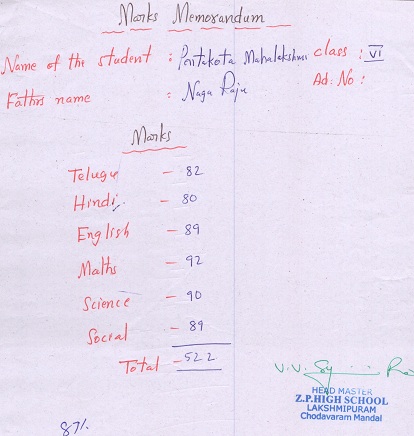 Marks Memorandum
Name of the student : Pentakota Mahalakshmi class : VI
Fathrs name : Naga Raju Ad: No :
Marks
Telugu - 82
Hindi - 80
English - 89
Maths - 92
Science - 90
Social - 89
Total - 522
V.V.
HEAD MASTER
Z.P.HIGH SCHOOL
LAKSHMIPURAM
Chodavaram Mandal
87%